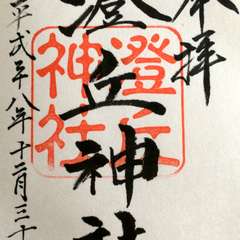 奉拝
澄丘神社
平成二十八年十二月三十
澄丘
神社